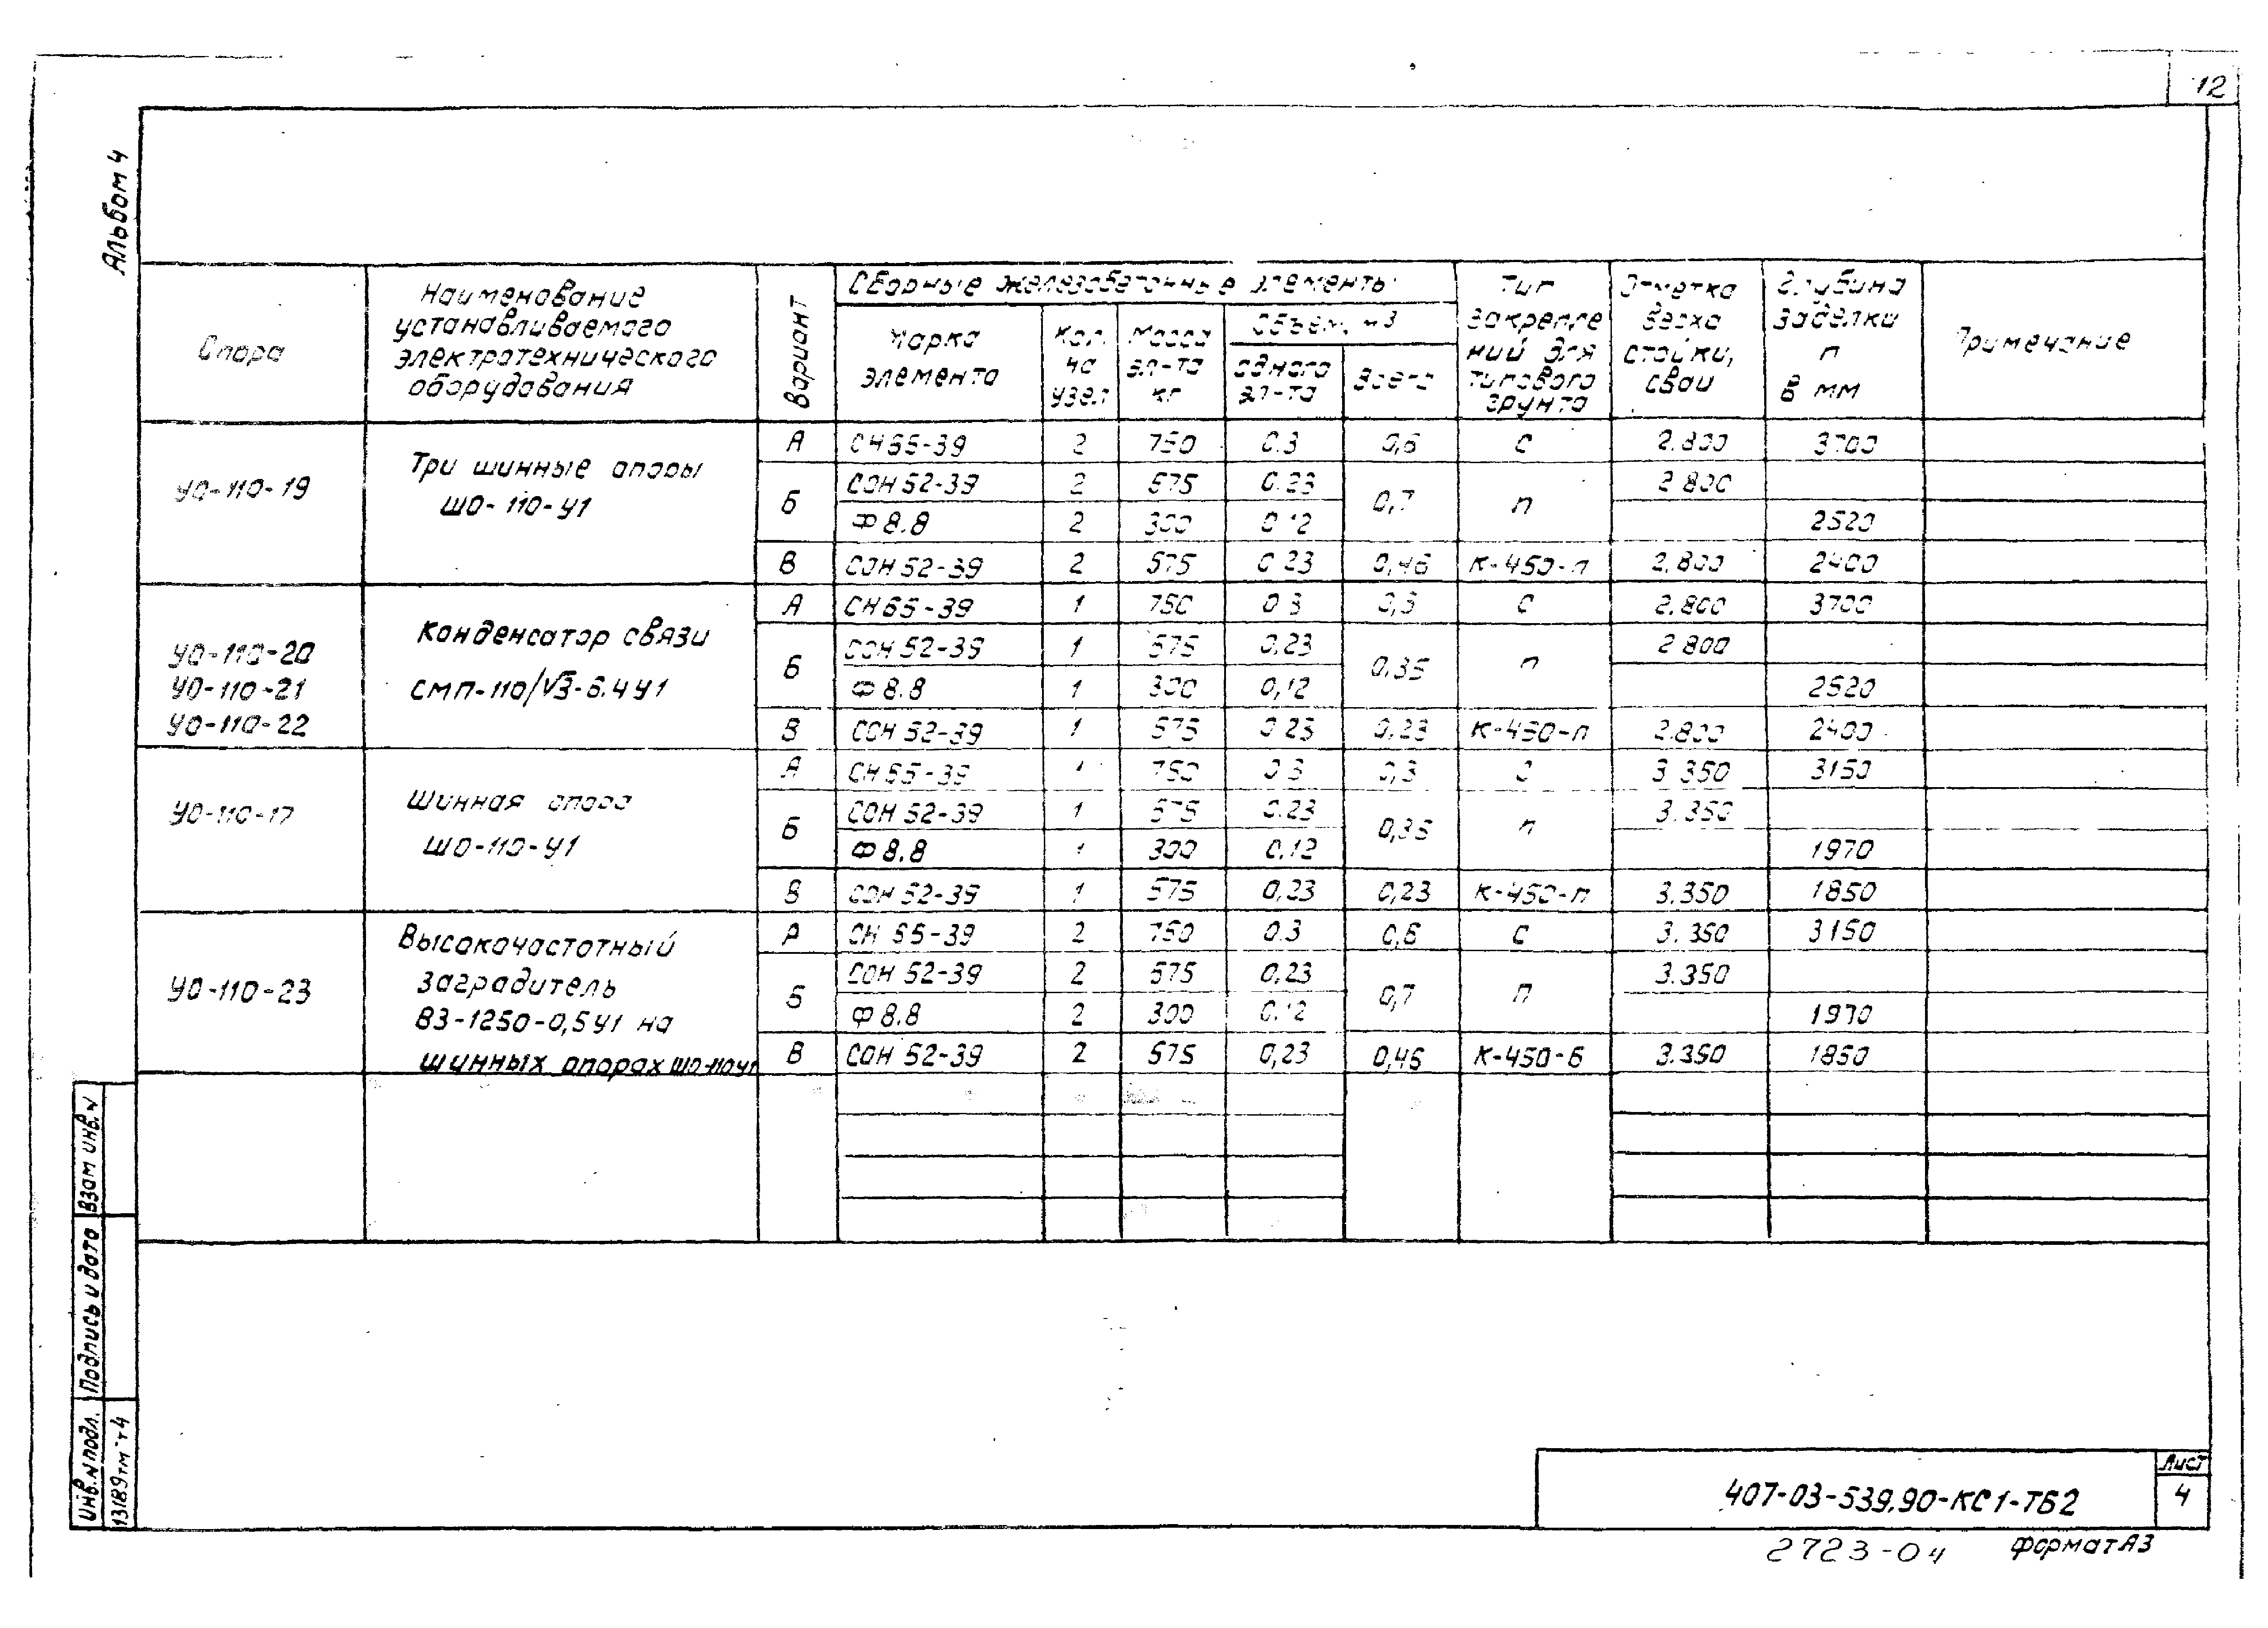 12
Альбом 4
Опора
Наименование
устанавливаемого
электротехнического
оборудования
Вариант
Сборные железобетонные элементы
Марка
элемента
Кол.
на
узел
Масса
эл-та
кг
Объем, м3
одного
эл-та
Всего
Тип
закрепле
ний для
типового
грунта
Отметка
верха
стойки,
сваи
Глубина
заделки
п
в мм
Примечание
УО-110-19
Три шинные опоры
ШО-110-У1
А СН65-39 2 750 0.3 0,6 С 2.800 3700
Б СОН 52-39 2 575 0.23 0,7 П 2.800
Ф 8.8 2 300 0.12 2520
В СОН 52-39 2 575 0.23 0,46 К-450-п 2.800 2400
УО-110-20
УО-110-21
УО-110-22
Конденсатор связи
СМП-110/√3-6.4У1
А СН65-39 1 750 0.3 0,3 С 2.800 3700
Б СОН 52-39 1 575 0.23 0,35 П 2.800
Ф 8.8 1 300 0,12 2520
В СОН 52-39 1 575 0.23 0,23 К-450-п 2.800 2400
УО-110-17
Шинная опора
ШО-110-У1
А СН65-39 1 750 0.3 0,3 С 3.350 3150
Б СОН 52-39 1 575 0.23 0,35 П 3.350
Ф 8.8 1 300 0.12 1970
В СОН 52-39 1 575 0,23 0,23 К-450-п 3.350 1850
УО-110-23
Высокочастотный
заградитель
ВЗ-1250-0,5У1 на
шинных опорах ШО-110У1
А СН 65-39 2 750 0.3 0,6 С 3.350 3150
Б СОН 52-39 2 575 0,23 0,7 П 3.350
Ф 8.8 2 300 0.12 1970
В СОН 52-39 2 575 0,23 0,46 К-450-б 3.350 1850
Взам инв. N
Подпись и дата
Инв. N подл.
13189тм-т4
407-03-539.90-КС1-ТБ2
Лист
4
2723-04
Формат А3